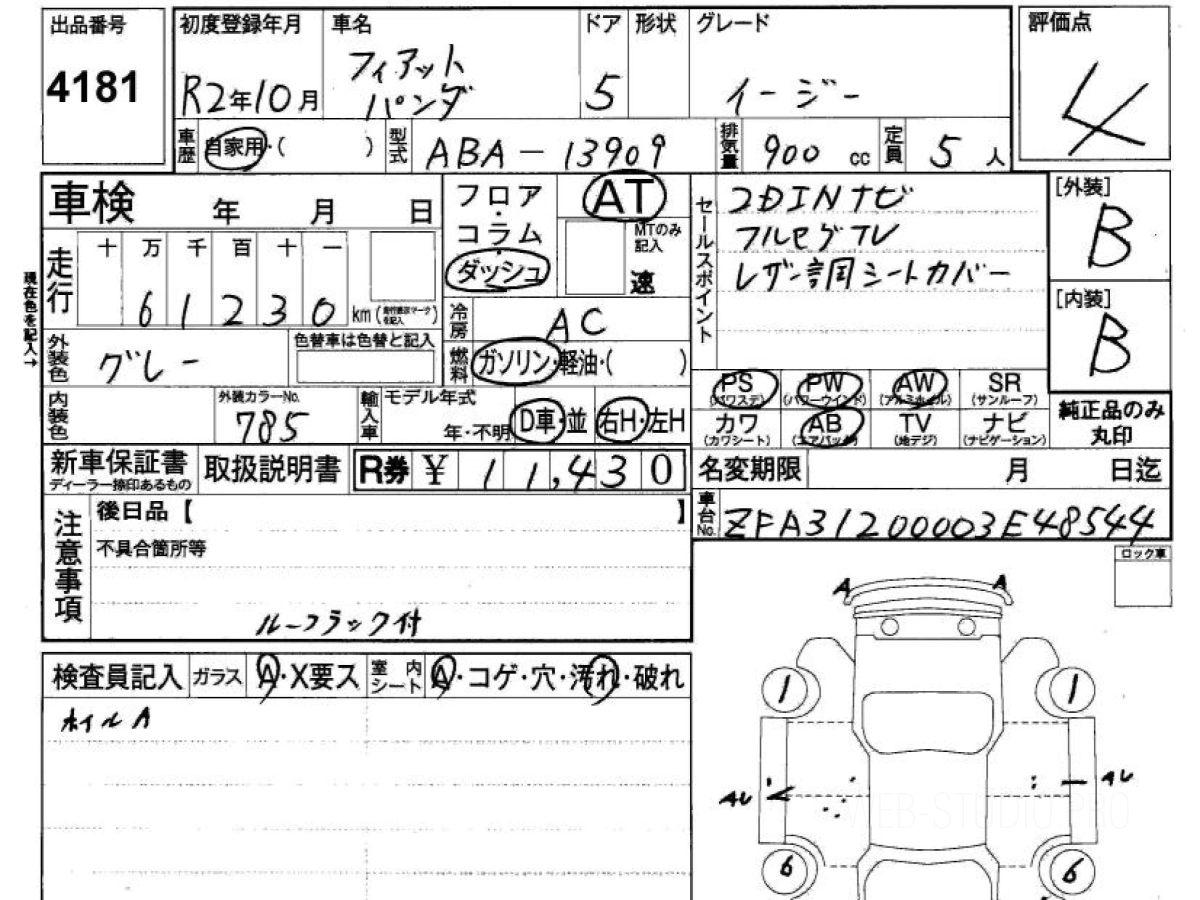 出品番号
4181
初度登録年月
R2年10月
車名
フィアット
パンダ
ドア
5
形状
グレード
イージー
評価点
4
車歴
自家用・( )
型式
ABA-13909
排気量
900 cc
定員
5人
車検 年 月 日
現在色を記入→
走行
十 万 千 百 十 一
6 1 2 3 0 km
外装色
グレー
色替車は色替と記入
フロア
・
コラム
ダッシュ
AT
MTのみ
記入
速
冷房
AC
燃料
ガソリン・軽油・( )
セールスポイント
2DINナビ
フルセグTV
レザー調シートカバー
[外装]
B
[内装]
B
内装色
外装カラーNo.
785
輸入車
モデル年式
年・不明
D車・並
右H・左H
PS
(パワステ)
PW
(パワーウインド)
AW
(アルミホイル)
SR
(サンルーフ)
カワ
(カワシート)
AB
(エアバック)
TV
(地デジ)
ナビ
(ナビゲーション)
純正品のみ
丸印
新車保証書
ディーラー捺印あるもの
取扱説明書
R券 ¥ 11,430
名変期限 月 日迄
車台No.
ZFA31200003E48544
注意事項
後日品【 】
不具合箇所等
ルーフラック付
ロック車
検査員記入
ガラス
A・X要ス
室内
シート
A・コゲ・穴・汚れ・破れ
ホイルA
A
A
1
1
AU
AU
WEB-STUDIO PRO
6
6